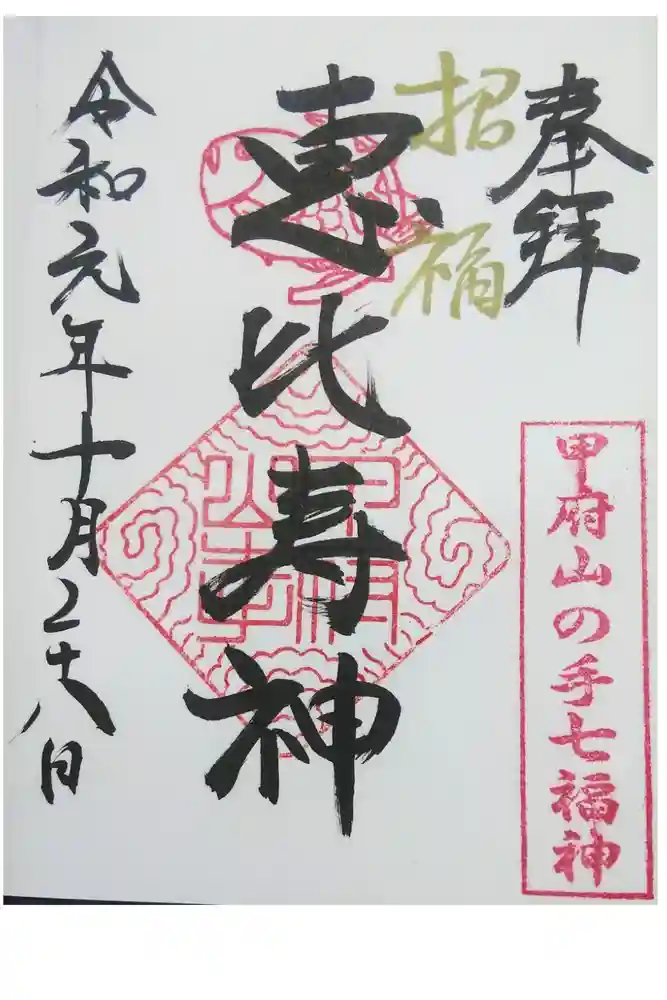 奉拝
甲府山の手七福神
招福
恵比寿神
甲府
山手
令和元年十月二十八日